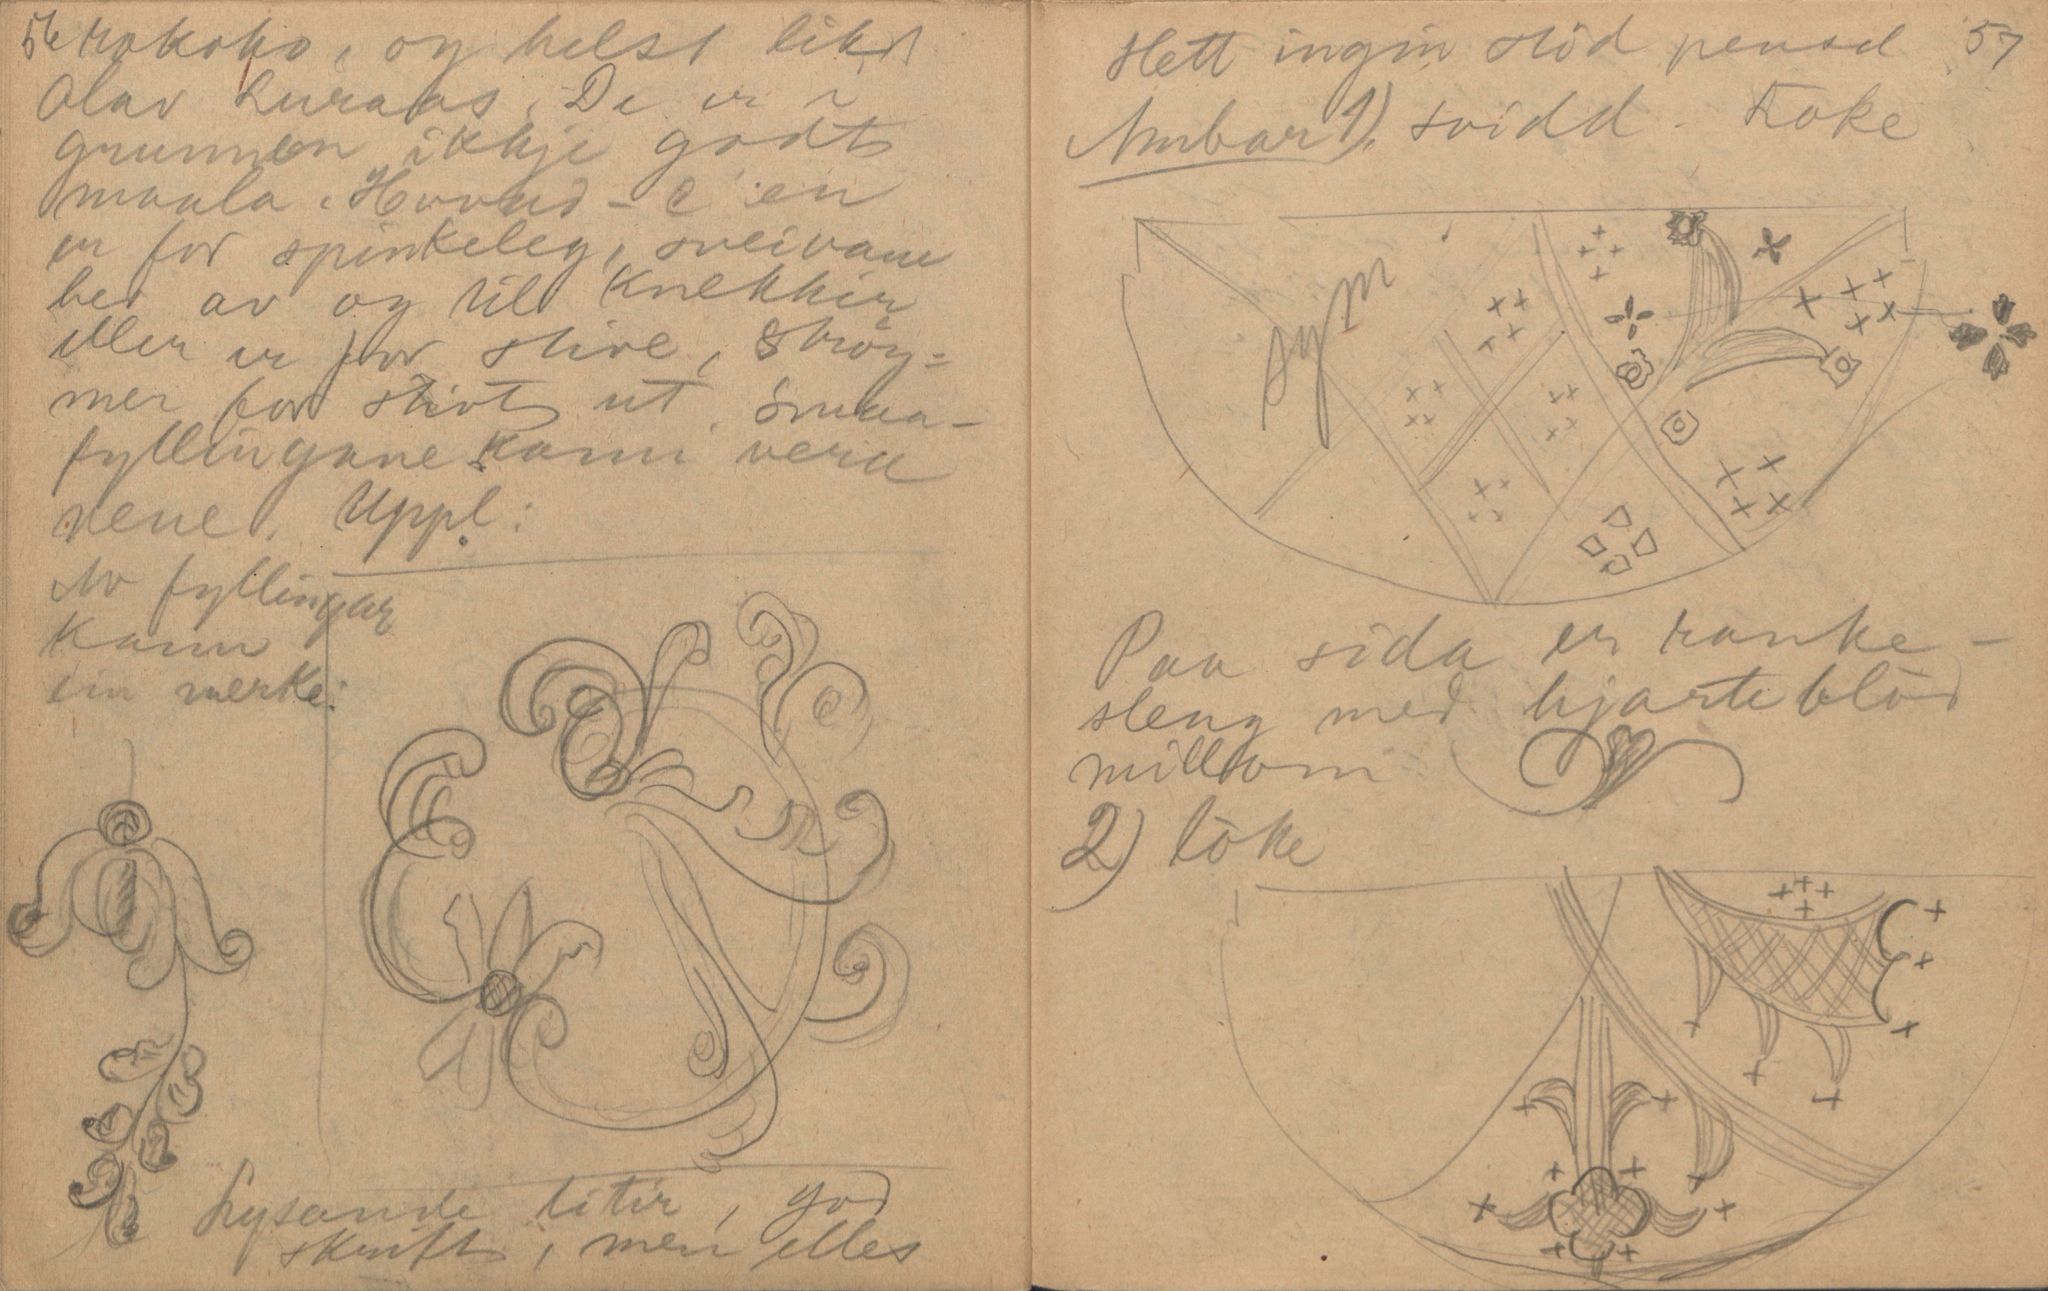 56 rokoko, og helst likt
Olav Luraas. De er i
grunnen ikkje godt
maala. Hovud-C'en
er for spinkeleg, sveivane
her av og til knekkir
eller er for stive, Strøy-
mer for stivt ut. Smaa-
fyllingane kann vera
rene. Uppl:
Av fyllingar
kann
ein merke:
Lysande litir, god
skrift, men elles
slett ingin stöd pensel 57
Ambar 1), svidd. Toke
sym
Paa sida er ranke-
sleng med hjarteblöd
millom
2) löke